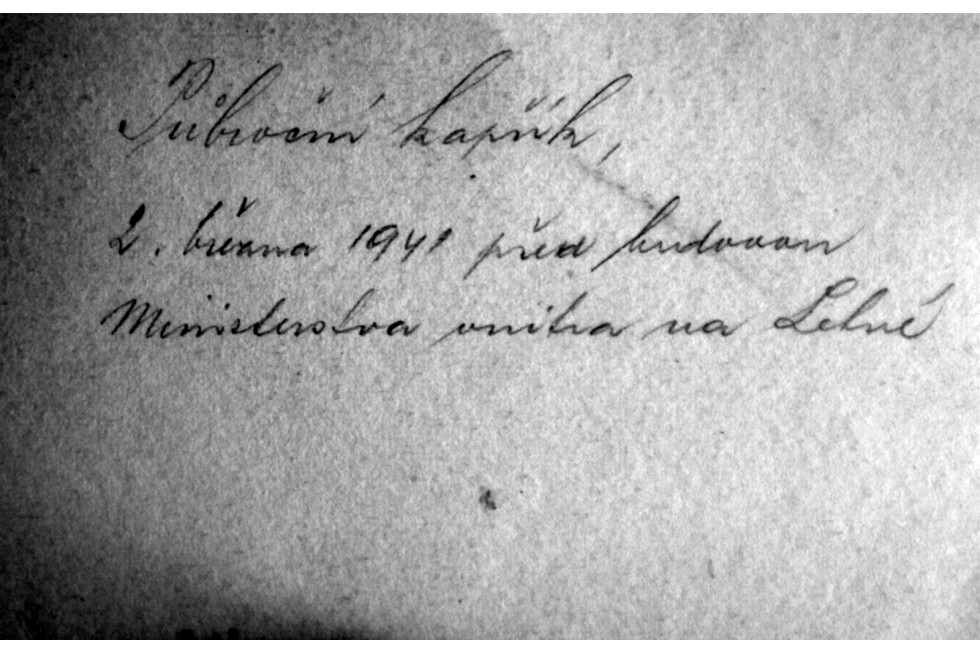 Půlroční kapřík,
2. března 1941 před budovou
Ministerstva vnitra na Letné